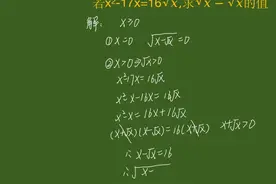 若x²-17x=16√x,求√x-√x的值
解: x≥0
①x=0 √x-√x=0
②x>0⇒√x>0
x²-17x=16√x
x²-x-16x=16√x
x²-x=16x+16√x
(x+√x)(x-√x)=16(x+√x) x+√x>0
∴x-√x=16
∴√x-